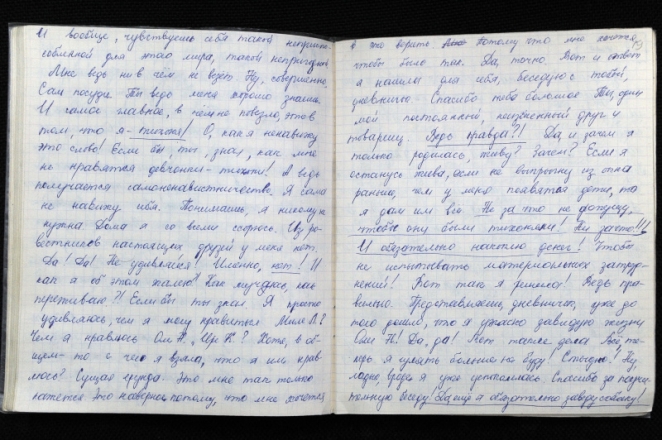 И вообще, чувствуешь себя такой неприспо-
собленной для этого мира, такой непригодной
Мне ведь ни в чём не везёт. Ну, совершенно.
Сам посуди. Ты ведь меня хорошо знаешь.
И самое главное, в чём не повезло, это в
том, что я – тихая! О, как я ненавижу
это слово! Если бы, ты, знал, как мне
не нравятся девчонки-тихони! А ведь
получается самоненавистничество. Я сама
не навижу себя. Понимаешь, я никому не
нужна. Дома я со всеми ссорюсь. Из ро-
вестников настоящих друзей у меня нет.
Да! Да! Не удивляйся! Именно, нет! И
как я об этом жалею! Как мучаюсь, как
переживаю?! Если бы ты знал. Я просто
удивляюсь, чем я могу нравиться
Чем я нравлюсь Оле Н., Ире К? Хотя, в об-
щем-то с чего я взяла, что я им нрав-
люсь? Сущая ерунда. Это мне так только
кажется. Это наверное потому, что мне хочется
в это верить. потому что мне хочется,
чтоб было так. Да, точно. Вот и ответ
я нашла для себя, беседуя с тобой,
дневничок. Спасибо тебе большое. Ты, один
мой постоянный, неизменный друг и
товарищ. Ведь правда?! Да и зачем я
только родилась, живу? Зачем? Если я
останусь жива, если не выпрыгну из окна
раньше, чем у меня появятся дети, то
я дам им всё. Не за что не допущу,
чтобы они были тихонями! Ни за что!!!
И обязательно накоплю денег! Чтобы
не испытывать материальных затруд-
нений! Вот так я решила! Ведь пра-
вильно. Представляешь, дневничок, уже до
того дошло, что я ужасно завидую жизни
Оли Н! Да, да! Вот такие дела. Всё, те-
перь я гулять больше не буду! Стыдно! Ну,
ладно, вроде я уже успокоилась. Спасибо за
беседу! Да, ещё я обязательно заведу собаку!